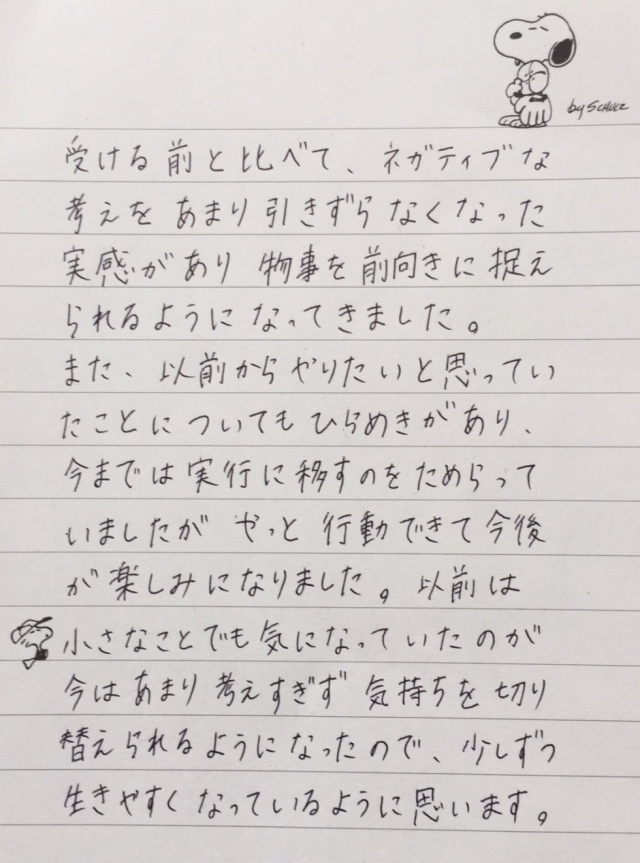 by SCHULZ
受ける前と比べて、ネガティブな
考えをあまり引きずらなくなった
実感があり物事を前向きに捉え
られるようになってきました。
また、以前からやりたいと思ってい
たことについてもひらめきがあり、
今までは実行に移すのをためらって
いましたがやっと行動できて今後
が楽しみになりました。以前は
小さなことでも気になっていたのが
今はあまり考えすぎず気持ちを切り
替えられるようになったので、少しずつ
生きやすくなっているように思います。